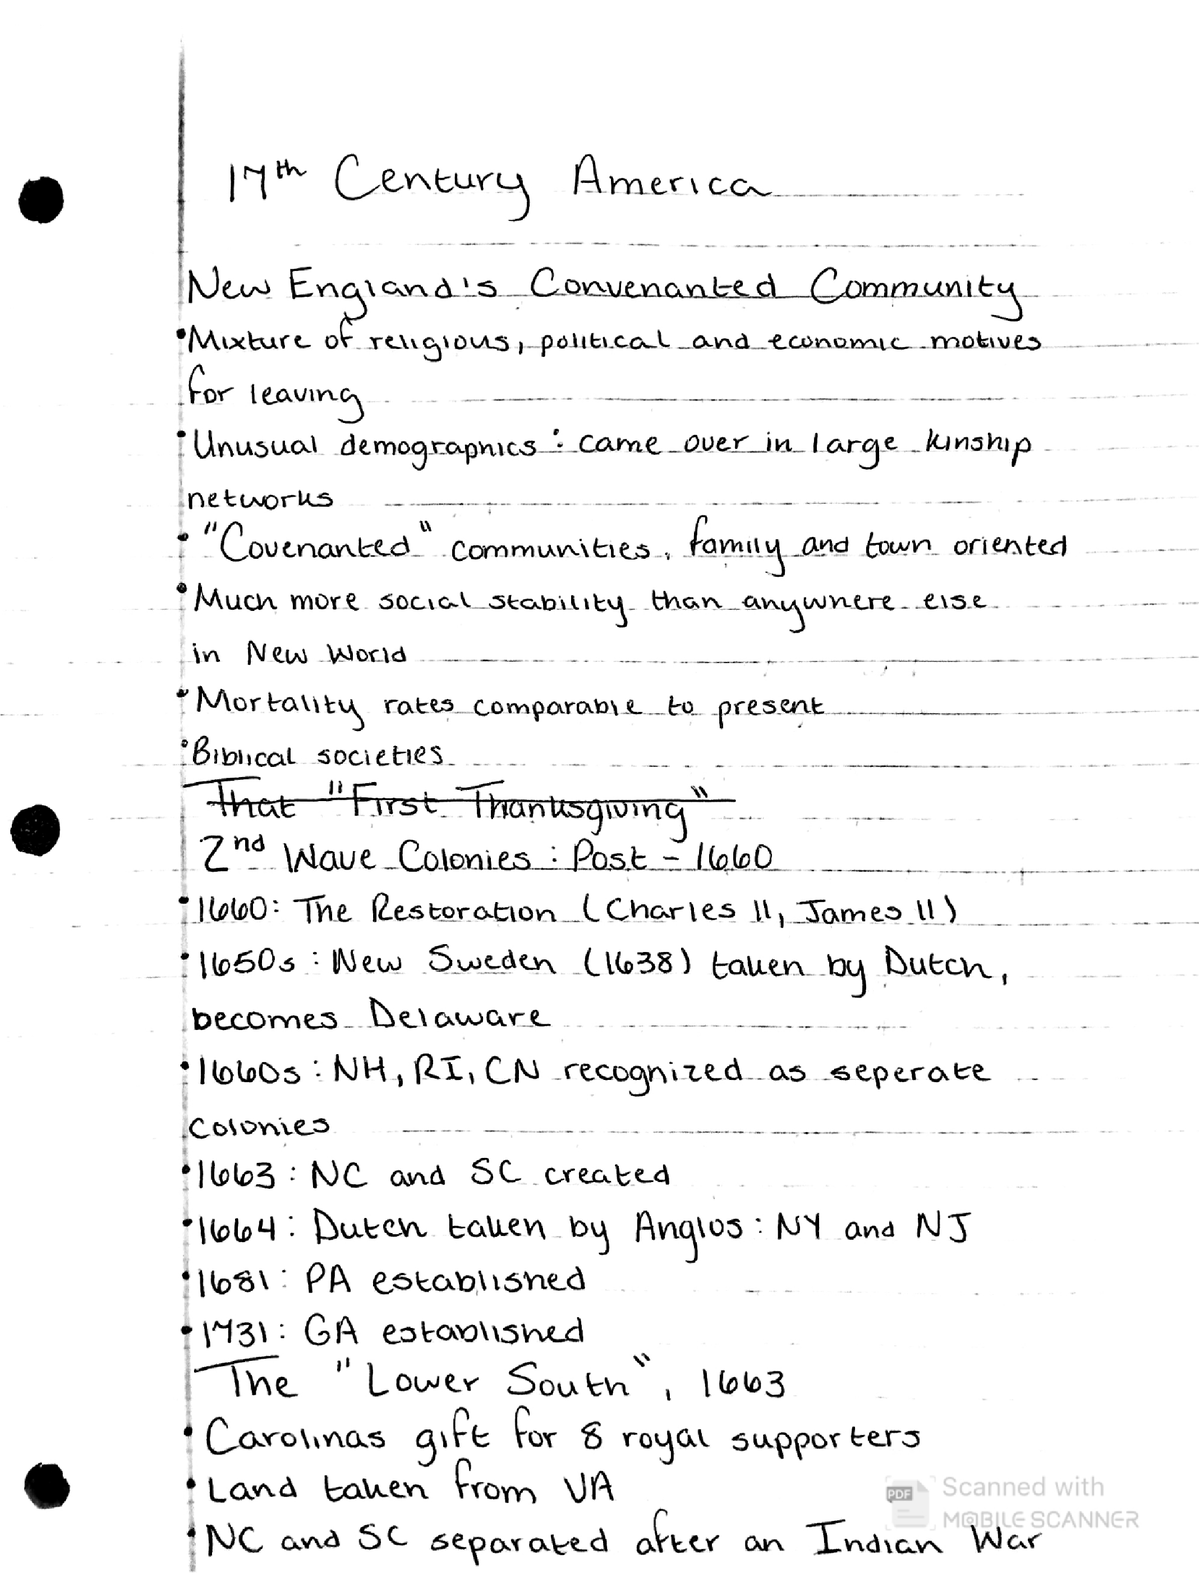 17th Century America
New England's Convenanted Community
•Mixture of religious, political and economic motives
for leaving
•Unusual demographics: came over in large kinship
networks
• "Covenanted" communities, family and town oriented
•Much more social stability than anywhere else
in New World
•Mortality rates comparable to present
•Biblical societies
That "First Thanksgiving"
2nd Wave Colonies: Post-1660
•1660: The Restoration (Charles II, James II)
•1650s: New Sweden (1638) taken by Dutch,
becomes Delaware
•1660s: NH, RI, CN recognized as seperate
colonies
•1663: NC and SC created
•1664: Dutch taken by Anglos: NY and NJ
•1681: PA established
•1731: GA established
The "Lower South", 1663
•Carolinas gift for 8 royal supporters
•Land taken from VA
•NC and SC separated after an Indian War
PDF Scanned with
MOBILE SCANNER